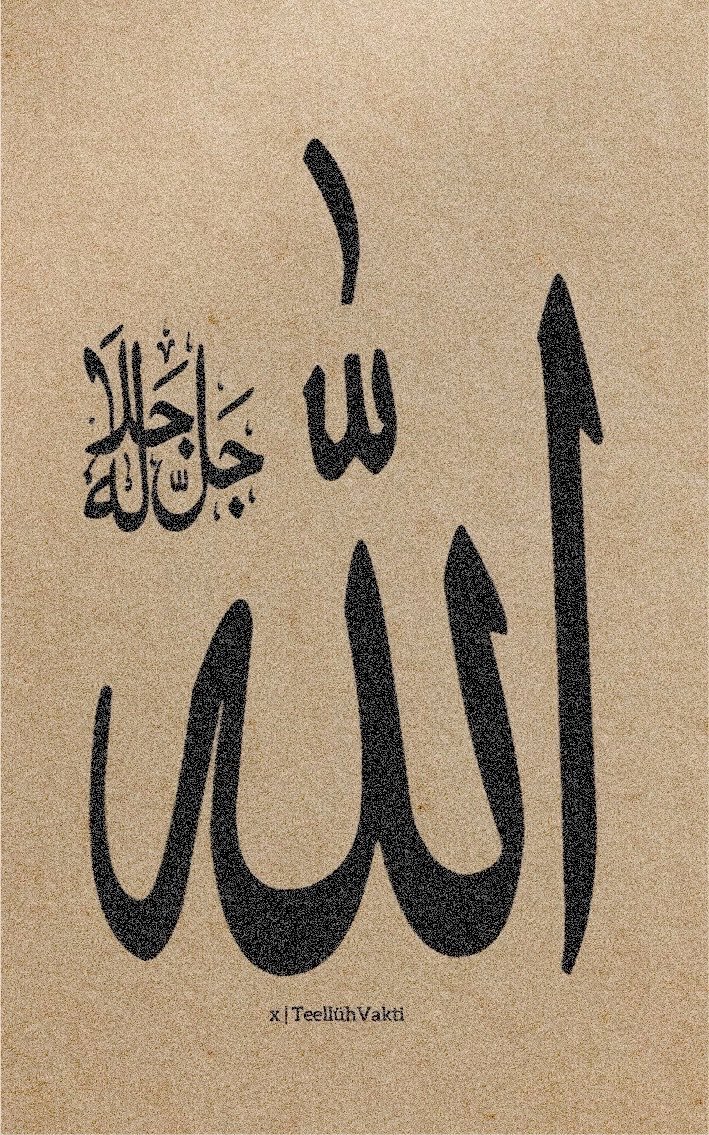 الله
جل جلاله
x | TeellühVakti